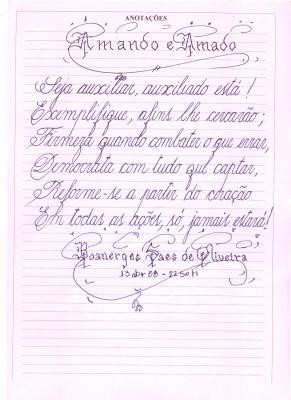 ANOTAÇÕES
Amando e Amado
Seja auxiliar, auxiliado está!
Exemplifique, afins lhe cercarão;
Firmeza quando combater o que errar,
Democrata com tudo que captar,
Reforme-se a partir do coração
Em todas as ações, só, jamais estará!
Boanerges Saes de Oliveira
13 abr 08 - 22:50h